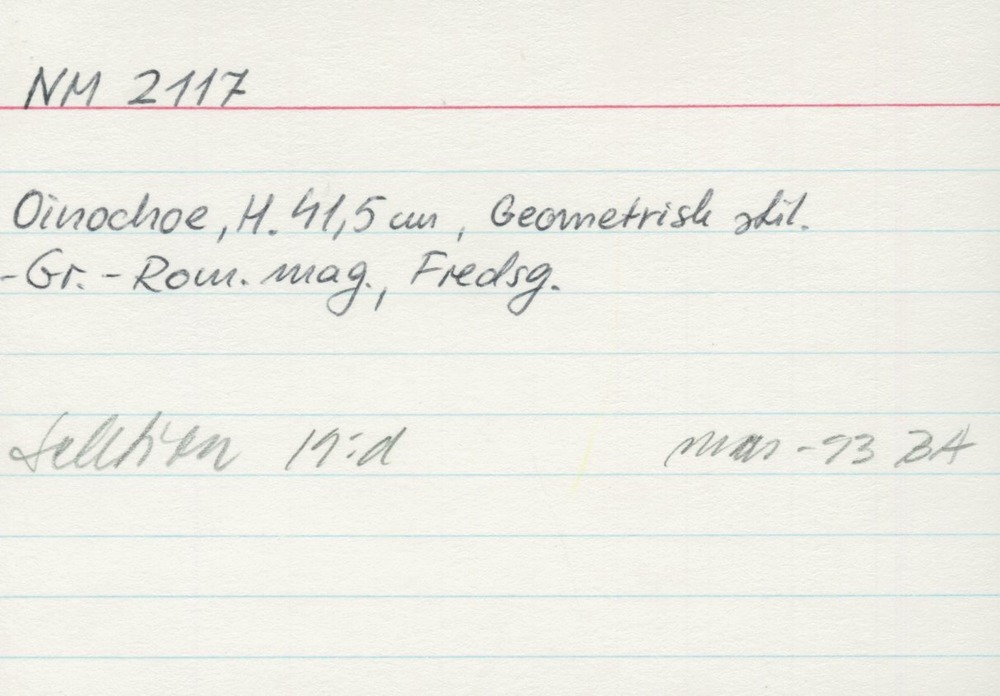 NM 2117
Oinochoe, H. 41,5 cm, Geometrisk stil.
-Gr.-Rom. mag., Fredsg.
Sektion 19:d mars -93 BA